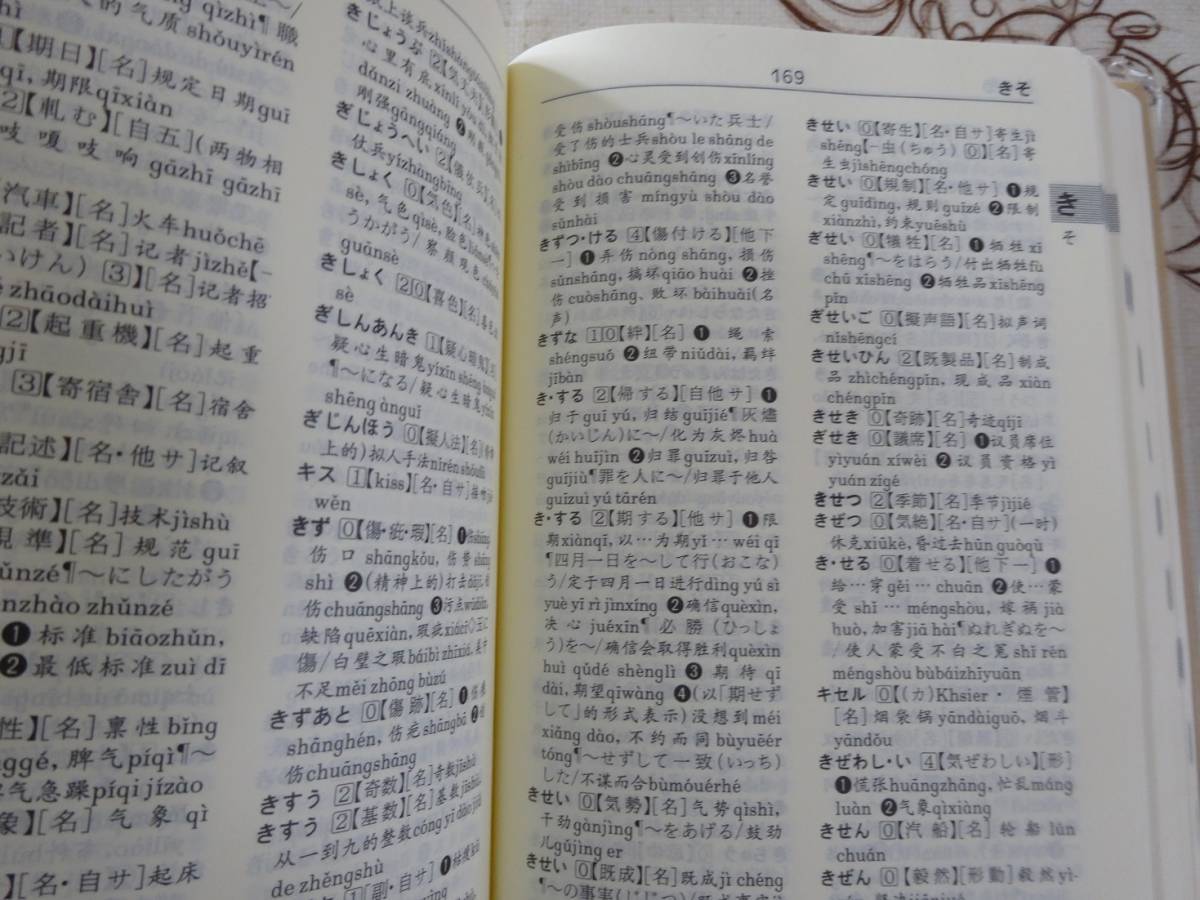 的气质shǒuyìrén
【期日】[名]规定日期guī
qī, 期限qīxiàn
2【軋む】[自五](两物相
吱嘎吱响gāzhī gāzhī
汽車】[名]火车huǒchē
記者】[名]记者jìzhě[-
いけん) 3[名]记者招
zhāodàihuì
2【起重機】[名]起重
3【寄宿舎】[名]宿舍
記述】[名・他サ]记叙
技術】[名]技术jìshù
規準】[名]规范guī
~にしたがう
zhǔnzé
❶标准biāozhǔn,
❷最低标准zuì dī
性】[名]禀性bǐng
脾气píqì¶~
气急躁píqi jízào
象】[名]气象qì
[名・自サ]起床
心里有底xīnlǐ
dǎnzi zhuàng ❷
刚强gāngqiáng
ぎじょうへい 2【儀仗兵】[名]
仪仗兵yízhàngbīng
きしょく 0【気色】[名]
sè, 气色qìsè, 脸色
うかがう/察颜观色
guānsè
きしょく 20【喜色】[名]
sè
ぎしんあんき 1【疑心暗鬼】[名]
疑心生暗鬼yíxīn shēng
¶~になる/疑心生暗鬼yíxīn
shēng ànguǐ
ぎじんほう 0【擬人法】[名]
上的)拟人手法nǐrén shǒufǎ
キス 1【kiss】[名・自サ]接吻
wěn
きず 0【傷・疵・瑕】[名]❶
伤口shāngkǒu, 伤势shāng
shì ❷(精神上的)打击
伤chuāngshāng ❸污点
缺陷quēxiàn, 瑕疵xiácī
傷/白璧之瑕báibì zhīxiá,
不足měi zhōng bùzú
きずあと 0【傷跡】[名]❶
shānghén, 伤疤shāngbā ❷
伤chuāngshāng
きすう 2【奇数】[名]奇数jīshù
きすう 2【基数】[名]基数jīshù
从一到九的整数cóng yī dào jiǔ
de zhěngshù
169
きそ
受伤shòushāng¶~いた兵士/
受了伤的士兵shòu le shāng de
shìbīng ❷心灵受到创伤xīnlíng
shòu dào chuāngshāng ❸名誉
受到损害míngyù shòu dào
sǔnhài
きずつ・ける 4【傷付ける】[他下
一]❶弄伤nòng shāng, 损伤
sǔnshāng, 搞坏qiāo huài ❷挫
伤cuòshāng、败坏bàihuài(名
声)
きずな 10【絆】[名] ❶ 绳索
shéngsuǒ ❷纽带niǔdài, 羁绊
jībàn
き・する 2【帰する】[自他サ] ❶
归于guī yú, 归结guījié¶灰燼
(かいじん)に~/化为灰烬huà
wéi huījìn ❷归罪guīzuì, 归咎
guījiù¶罪を人に~/归罪于他人
guīzuì yú tārén
き・する 2【期する】[他サ] ❶限
期xiànqī, 以…为期yǐ…wéi qī
¶四月一日を~して行(おこな)
う/定于四月一日进行dìng yú sì
yuè yī rì jìnxíng ❷确信quèxìn,
决心juéxīn¶必勝(ひっしょ
う)を~/确信会取得胜利quèxìn
huì qǔdé shènglì ❸期待qī
dài, 期望qīwàng ❹(以「期せず
して」的形式表示)没想到méi
xiǎng dào, 不约而同bùyuēér
tóng¶~せずして一致(いっち)
した/不谋而合bùmóuérhé
きせい 0【気勢】[名]气势qìshì,
干劲gànjìng¶~をあげる/鼓劲
儿gǔjìng er
きせい 0【既成】[名]既成jì chéng
きせい 0【寄生】[名・自サ]寄生jì
shēng[-虫(ちゅう) 0][名]寄
生虫jìshēngchóng
きせい 0【規制】[名・他サ] ❶规
定guīdìng, 规则guīzé ❷限制
xiànzhì, 约束yuēshù
ぎせい 0【犠牲】[名] ❶牺牲xī
shēng¶~をはらう/付出牺牲fù
chū xīshēng ❷牺牲品xīshēng
pǐn
ぎせいご 0【擬声語】[名]拟声词
nǐshēngcí
きせいひん 2【既製品】[名]制成
品zhìchéngpǐn, 现成品xiàn
chéngpǐn
きせき 0【奇跡】[名]奇迹qíjī
ぎせき 0【議席】[名] ❶议员席位
yìyuán xíwèi ❷议员资格yì
yuán zīgé
きせつ 2【季節】[名]季节jìjié
きぜつ 0【気絶】[名・自サ](一时)
休克xiūkè, 昏过去hūn guòqù
き・せる 0【着せる】[他下一] ❶
给…穿gěi…chuān ❷使…蒙
受shǐ…méngshòu, 嫁祸jià
huò, 加害jiā hài¶ぬれぎぬを~
/使人蒙受不白之冤shǐ rén
méngshòu bùbáizhīyuān
キセル 0【(カ)Khsier・煙管】
[名]烟袋锅yāndàiguō, 烟斗
yāndǒu
きぜわし・い 4【気ぜわしい】[形]
❶慌张huāngzhāng, 忙乱máng
luàn ❷气象qìxiàng
きせん 0【汽船】[名]轮船lún
chuán
きぜん 0【毅然】[形動]毅然yì-
き
そ